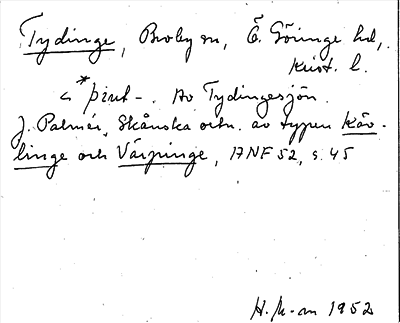 Tydinge, Broby sn, Ö. Göinge hd,
Krist. l.
< *þiut-. Av Tydingesjön.
J. Palmér, Skånska ortn. av typen Käv-
linge och Värpinge, ANF 52, s. 45
1952